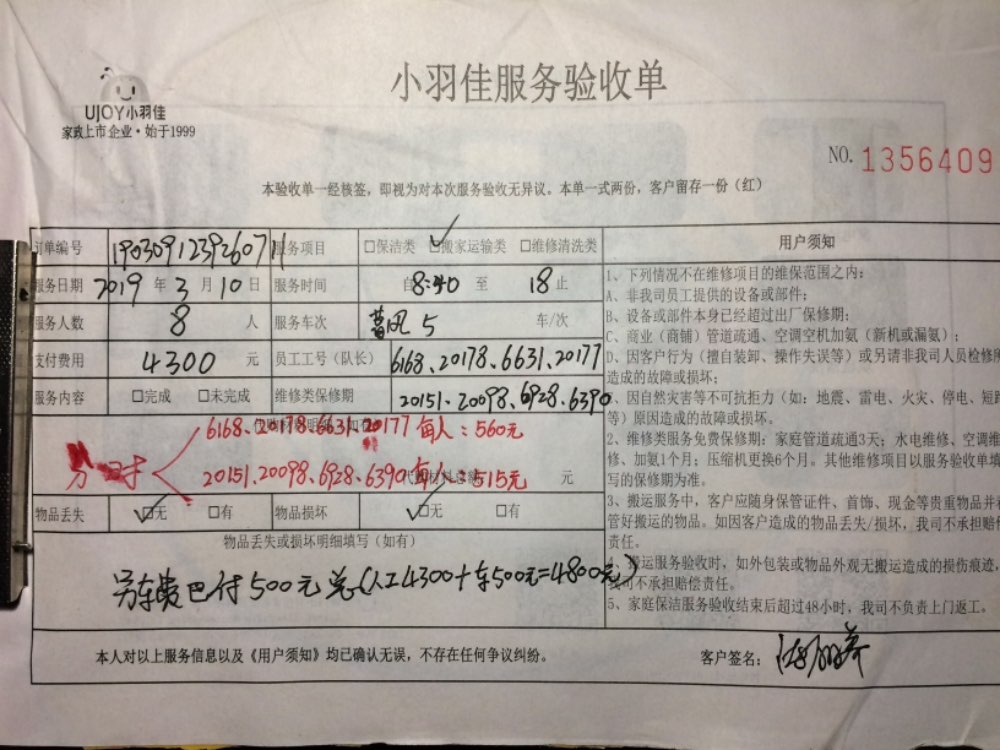 UJOY小羽佳
家政上市企业·始于1999
小羽佳服务验收单
NO. 1356409
本验收单一经核签，即视为对本次服务验收无异议。本单一式两份，客户留存一份（红）
订单编号 190309123926071 服务项目 □保洁类 □搬家运输类 □维修清洗类
服务日期 2019 年 3 月 10 日 服务时间 自8:40 至 18止
服务人数 8 人 服务车次 5 车/次
支付费用 4300 元 员工工号（队长） 6168、20178、6631、20177
服务内容 □完成 □未完成 维修类保修期 20151、20098、6928、6390
6168、20178、6631、20177 每人：560元
20151、20098、6928、6390 每人：515元
元
物品丢失 □无 □有 物品损坏 □无 □有
物品丢失或损坏明细填写（如有）
另车费已付500元 总（人工4300+车500元=4800元）
用户须知
1、下列情况不在维修项目的维保范围之内：
A、非我司员工提供的设备或部件；
B、设备或部件本身已经超过出厂保修期；
C、商业（商铺）管道疏通、空调空机加氨（新机或漏氨）；
D、因客户行为（擅自装卸、操作失误等）或另请非我司人员检修所
造成的故障或损坏；
、因自然灾害等不可抗拒力（如：地震、雷电、火灾、停电、短路
等）原因造成的故障或损坏。
2、维修类服务免费保修期：家庭管道疏通3天；水电维修、空调维
修、加氨1个月；压缩机更换6个月。其他维修项目以服务验收单填
写的保修期为准。
3、搬运服务中，客户应随身保管证件、首饰、现金等贵重物品并
管好搬运的物品。如因客户造成的物品丢失/损坏，我司不承担赔偿
责任。
4、搬运服务验收时，如外包装或物品外观无搬运造成的损伤痕迹，
我司不承担赔偿责任。
5、家庭保洁服务验收结束后超过48小时，我司不负责上门返工。
本人对以上服务信息以及《用户须知》均已确认无误，不存在任何争议纠纷。 客户签名：